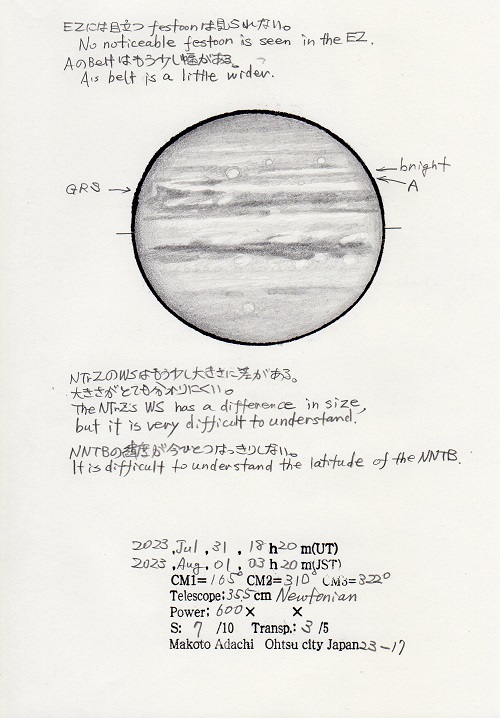 EZには目立つ festoonは見られない。
No noticeable festoon is seen in the EZ.
AのBeltはもう少し幅がある。
A's belt is a little wider.
bright
GRS
A
NTrZのWSはもう少し大きさに差がある。
大きさがとても分かりにくい。
The NTrZ's WS has a difference in size,
but it is very difficult to understand.
NNTBの緯度が今ひとつはっきりしない。
It is difficult to understand the latitude of the NNTB.
2023,Jul,31,18h20m(UT)
2023,Aug,01,03h20m(JST)
CM1=165° CM2=310° CM3=322°
Telescope:355cm Newtonian
Power:600× ×
S: 7 /10 Transp.: 3 /5
Makoto Adachi Ohtsu city Japan 23-17